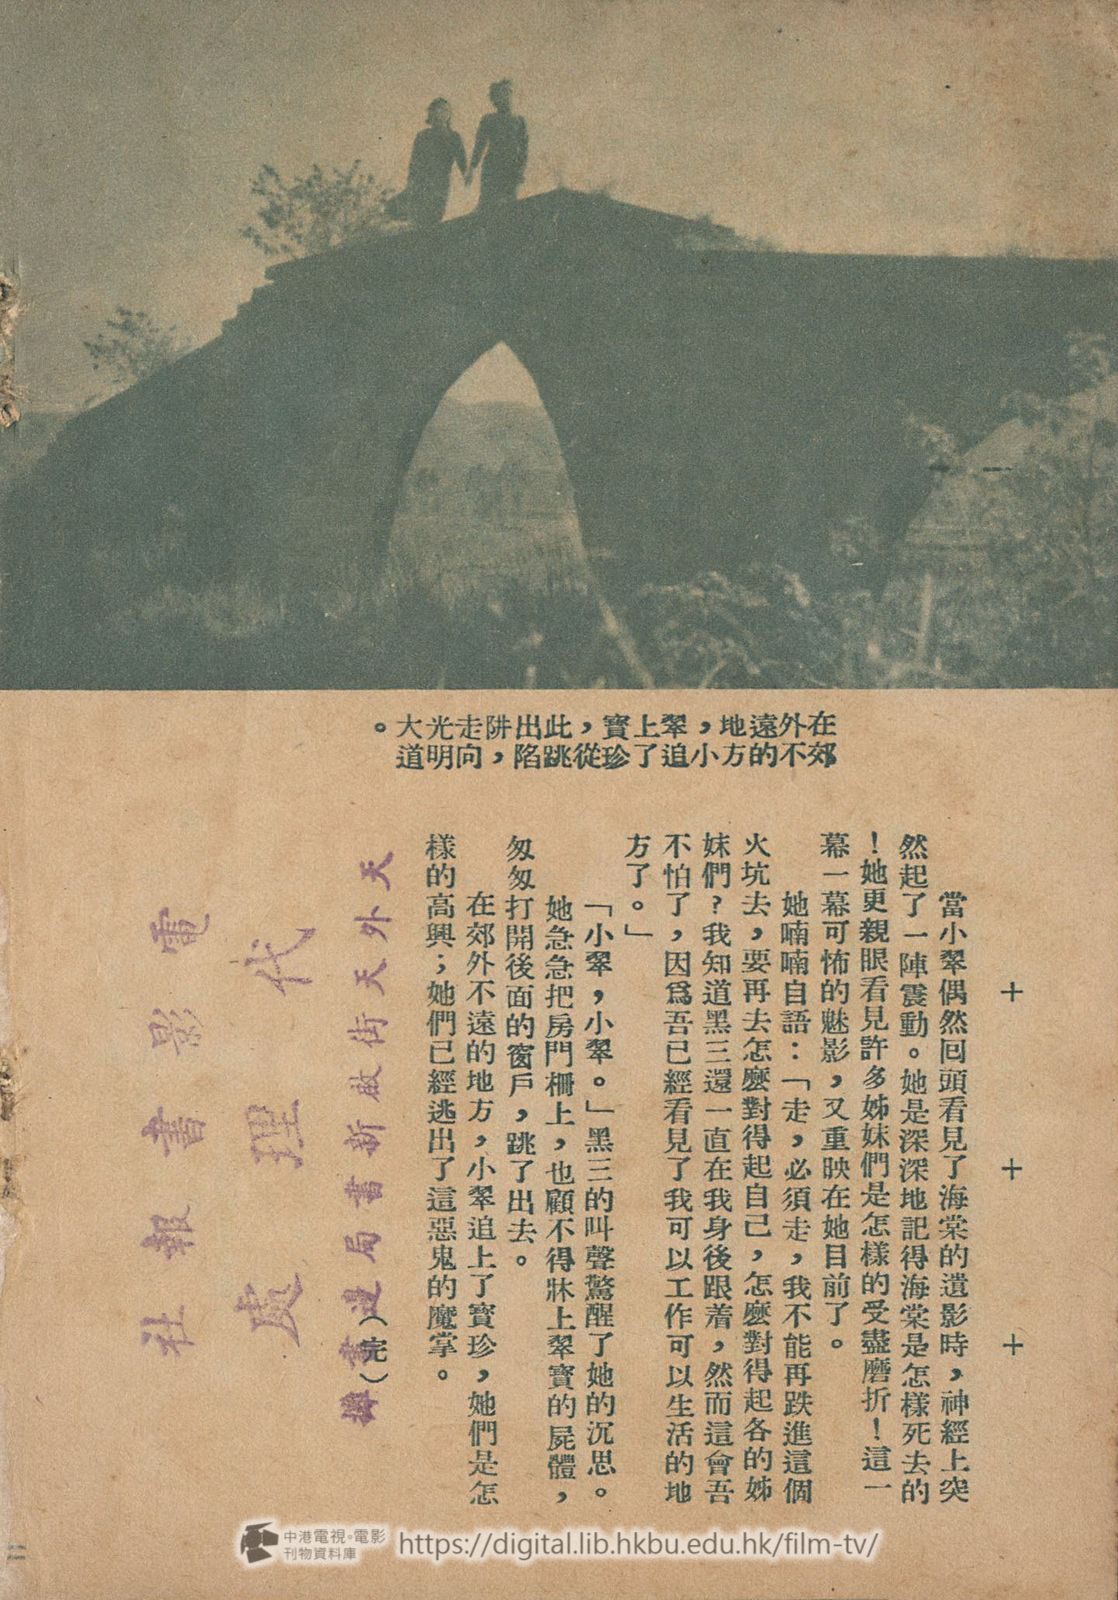 在郊外不遠的地方，小翠追上了寶珍，從此跳出陷阱，走向光明大道。
＋　＋　＋
當小翠偶然回頭看見了海棠的遺影時，神經上突
然起了一陣震動。她是深深地記得海棠是怎樣死去的
！她更親眼看見許多姊妹們是怎樣的受盡磨折！這一
幕一幕可怖的魅影，又重映在她目前了。
她喃喃自語：「走，必須走，我不能再跌進這個
火坑去，要再去怎麼對得起自己，怎麼對得起各的姊
妹們？我知道黑三還一直在我身後跟着，然而這會吾
不怕了，因爲吾已經看見了我可以工作可以生活的地
方了。」
「小翠，小翠。」黑三的叫聲驚醒了她的沉思。
她急急把房門柵上，也顧不得牀上翠寶的屍體，
匆匆打開後面的窗戶，跳了出去。
在郊外不遠的地方，小翠追上了寶珍，她們是怎
樣的高興；她們已經逃出了這惡鬼的魔掌。
（完）
天外天街啟新書局邊
代理處
電影書報社
中港電視·電影
刊物資料庫
https://digital.lib.hkbu.edu.hk/film-tv/